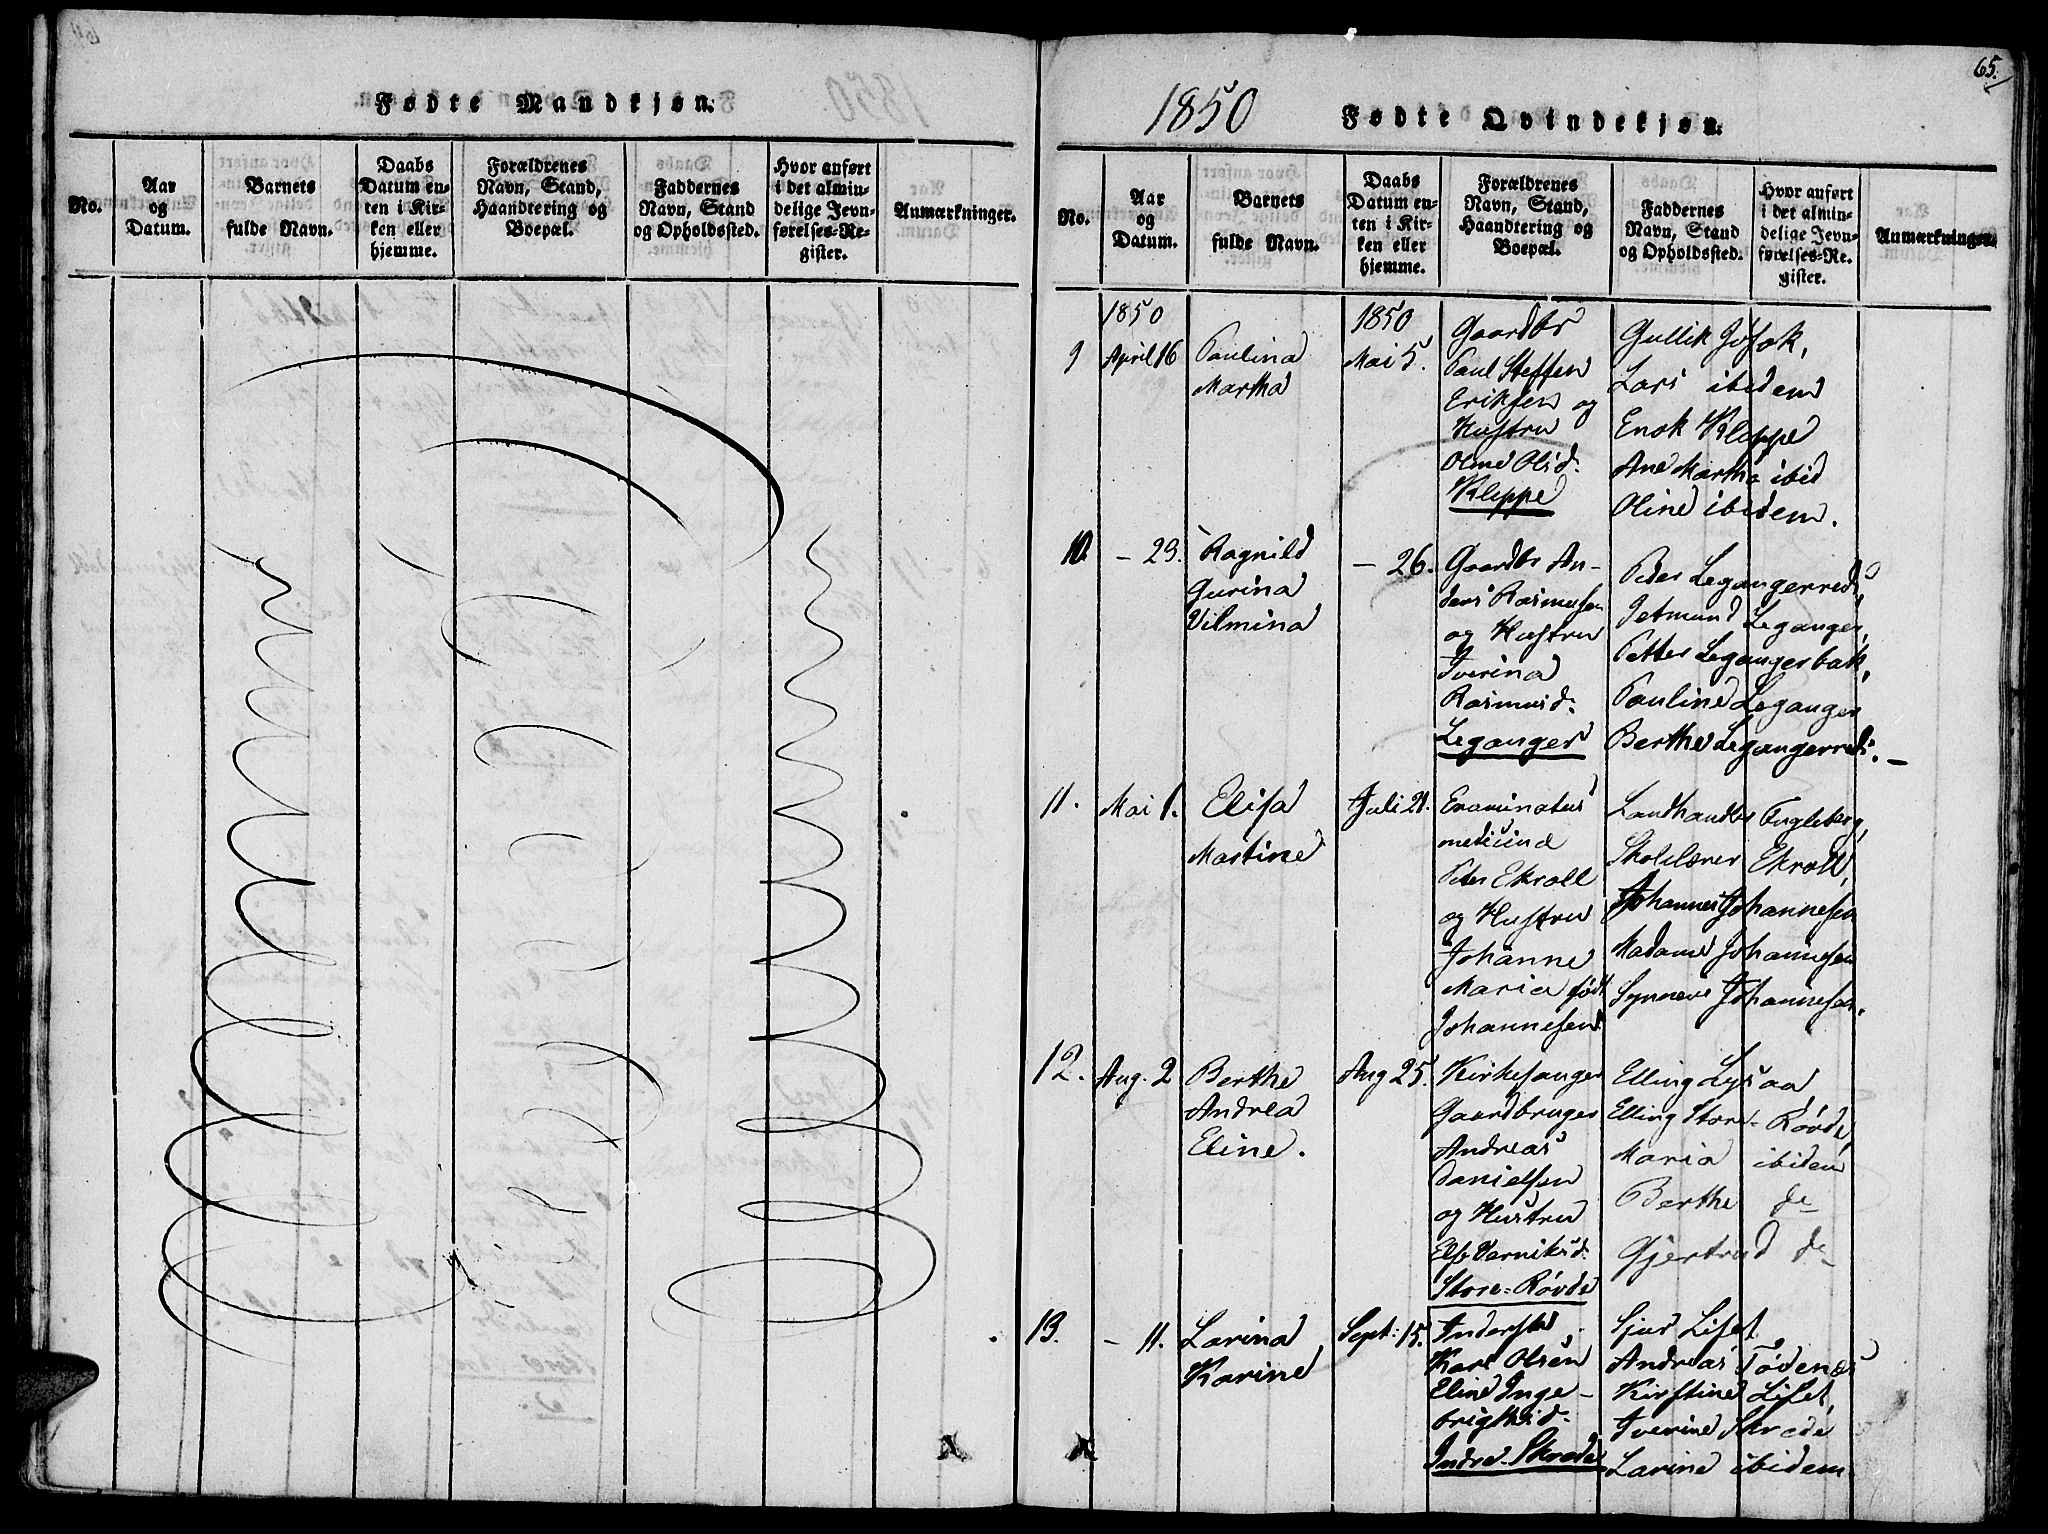 Fødte Mandkjøn.
No.
Aar
og
Datum.
Barnets
fulde Navn.
Daabs
Datum en-
ten i Kir-
ken eller
hjemme.
Forældrenes
Navn, Stand,
Haandtering og
Boepæl.
Faddernes
Navn, Stand
og Opholdssted.
Hvor anført
i det almin-
delige Jevn-
førelses-Re-
gister.
Anmærkninger.
65.
1850
Fødte Qvindekjøn.
No.
Aar
og
Datum.
Barnets
fulde Navn.
Daabs
Datum en-
ten i Kir-
ken eller
hjemme.
Forældrenes
Navn, Stand,
Haandtering og
Boepæl.
Faddernes
Navn, Stand
og Opholdssted.
Hvor anført
i det almin-
delige Jevn-
førelses-Re-
gister.
Anmærkninger.
9
1850
April 16
Paulina
Martha
1850
Mai 5.
Gaardbr
Paul Steffen
Eriksen og
Hustru
Oline Olsd.
Kleppe
Gullik
Lars ibidem
Enok Kleppe
Ane Martha ibid
Oline ibidem.
10.
- 29.
Ragnild
Gurina
Vilmina
- 26.
Gaardbr An-
ders Rasmusen
og Hustru
Iverina
Rasmusd.
Leganger
Peder Legangerreds,
Jetmund Leganger,
Petter Legangerbak,
Pauline Leganger
Berthe Legangerreds. -
11.
Mai 1.
Elisa
Martine
Juli 21.
Examinatus
medicinæ
Peter Ekroll
og Hustru
Johanne
Maria født
Johannesen
Landhandler Fugleberg,
Skolelærer Ekroll,
Johannes Johannesen
Madame Johannesen
Synneve Johannesen.
12.
Aug. 2
Berthe
Andrea
Eline.
Aug 25.
Kirkesanger
Gaardbruger
Andreas
Danielsen
og Hustru
Else Verniksd.
Store=Røvde
Elling Lysaa
Elling Store-Røvde,
Maria ibidem
Berthe do
Gjertrud do
13.
- 11.
Larina
Karine
Sept: 15.
Inderst
Kars Olsen
Eline Inge-
brigtsd.
Indre-Skrede
Sjur Liset
Andreas Tødenæs
Kirstine Liset,
Iverine Skrede
Larine ibidem